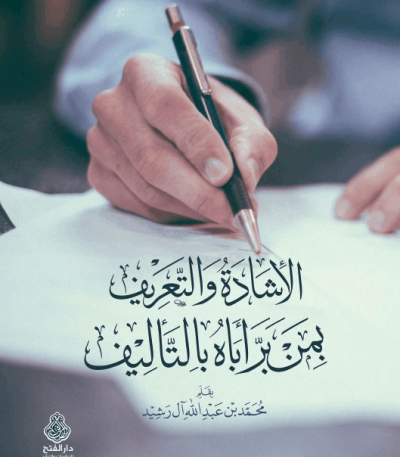 الإشَادَةُ وَالتَّعْرِيْف
بِمَنْ بَرَّ أَبَاهُ بِالتَّأْلِيْف
بِقَلَم
مُحَمَّد بْن عَبْدِ اللهِ آل رَشِيْد
دار الفتح